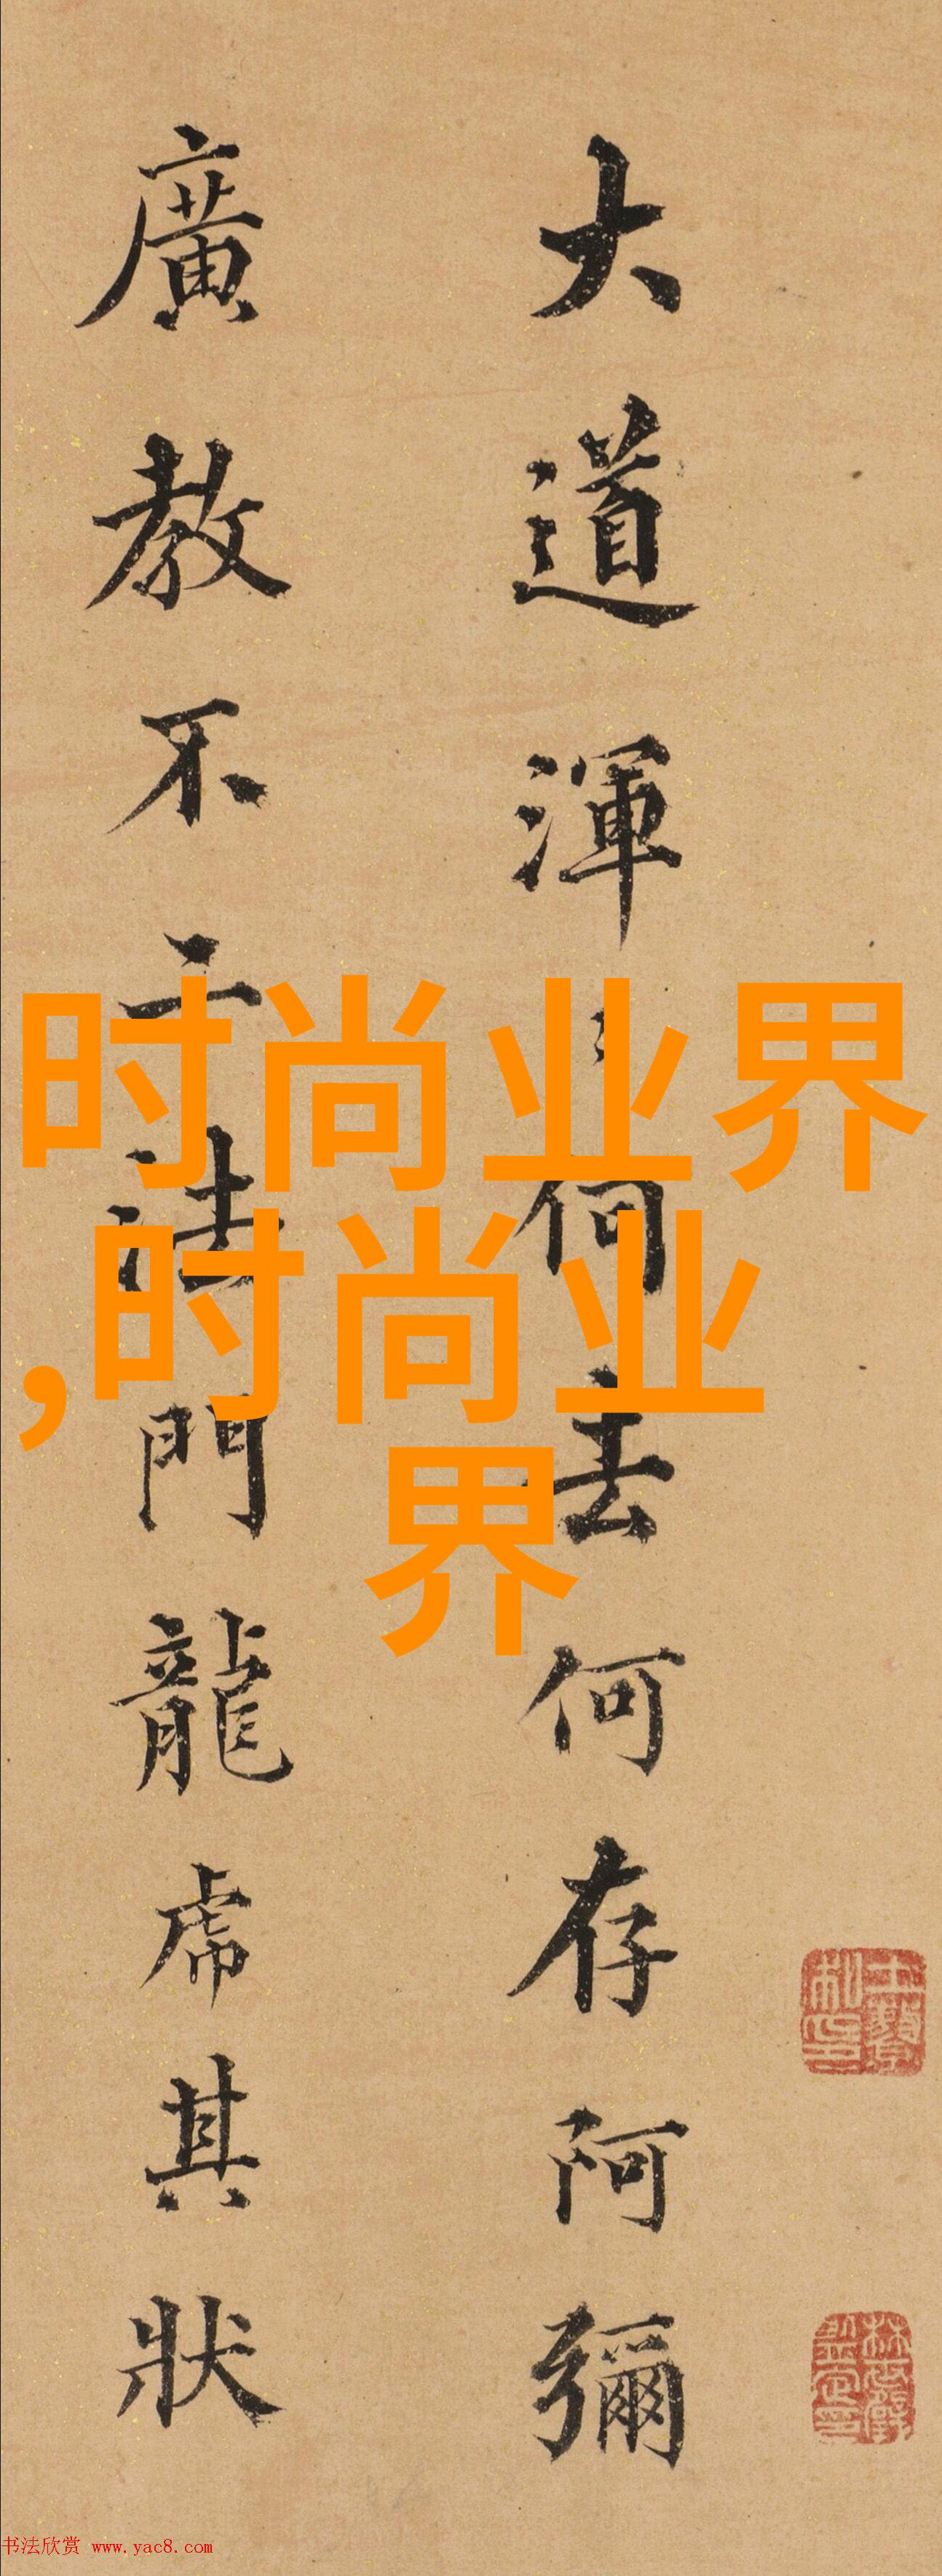 大道渾〻何去何存阿彌
廣教不二法門龍虎其狀
时尚业界
,时尚业
界
书法欣赏 www.yac8.com